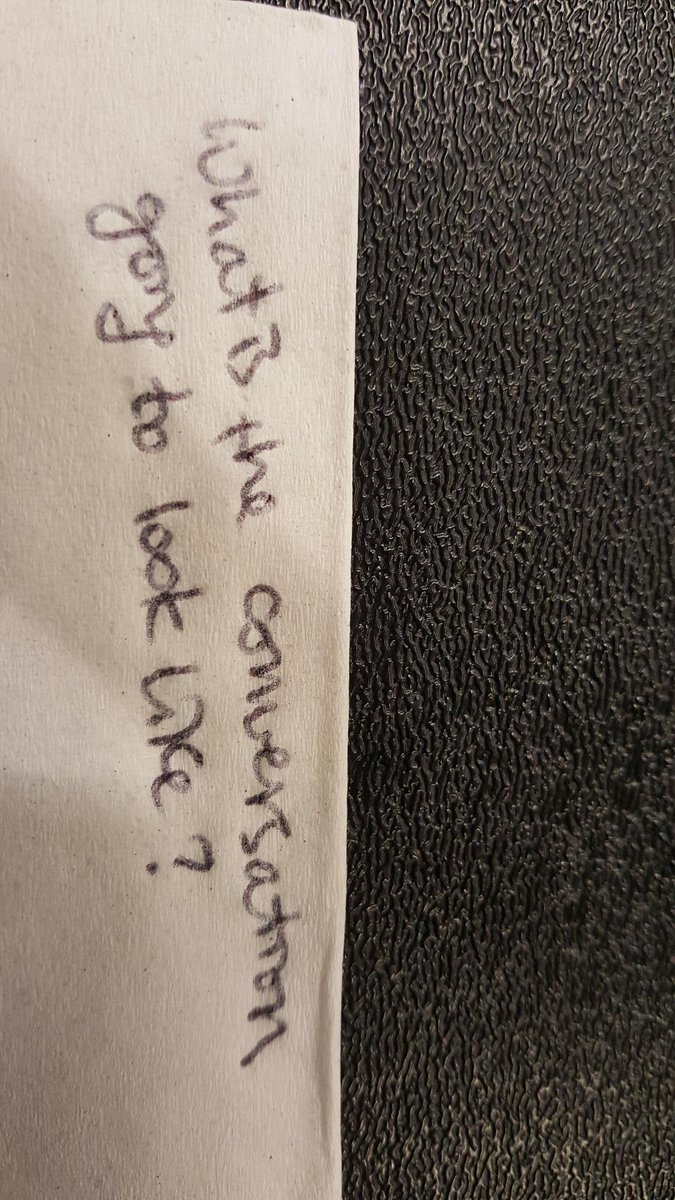 What is the conversation
going to look like?